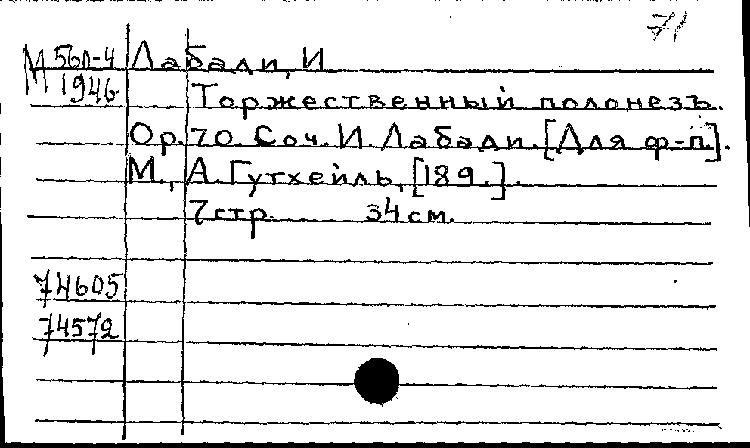 71
М 56л-4 Лабади, И
1946
Торжественный полонезъ.
Op. 70. Соч. И. Лабади. [Для ф-п.].
М., А. Гутхейль, [189.].
7 стр. 34 см.
74605
74572